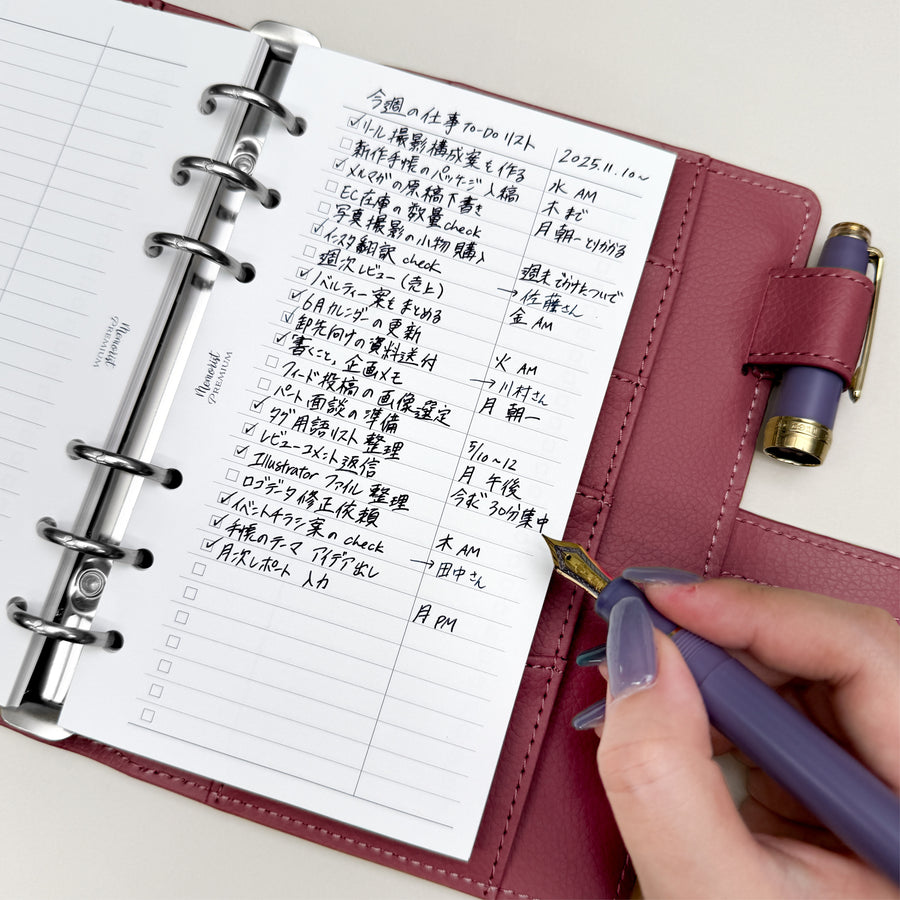 今週の仕事 To-Do リスト 2025.11.10~
リール撮影構成案を作る 水 AM
新作手帳のパッケージ入稿 木まで
メルマガの原稿下書き 月朝一とりかかる
EC在庫の数量check
写真撮影の小物購入 週末でかけたついで
インスタ翻訳 check →佐藤さん
週次レビュー(売上) 金 AM
ノベルティー案をまとめる
6月カレンダーの更新 火 AM
卸先向けの資料送付 →川村さん
書くこと。企画メモ 月 朝一
フィード投稿の画像選定
パート面談の準備 5/10~12
タグ用語リスト整理 月 午後
レビューコメント返信 30分集中
Illustrator ファイル 整理
ロゴデータ修正依頼 木 AM
イベントチラシ案の check →田中さん
手帳のテーマ アイデア出し
月次レポート 入力 月 PM
Memorist
PREMIUM
Memorist
PREMIUM